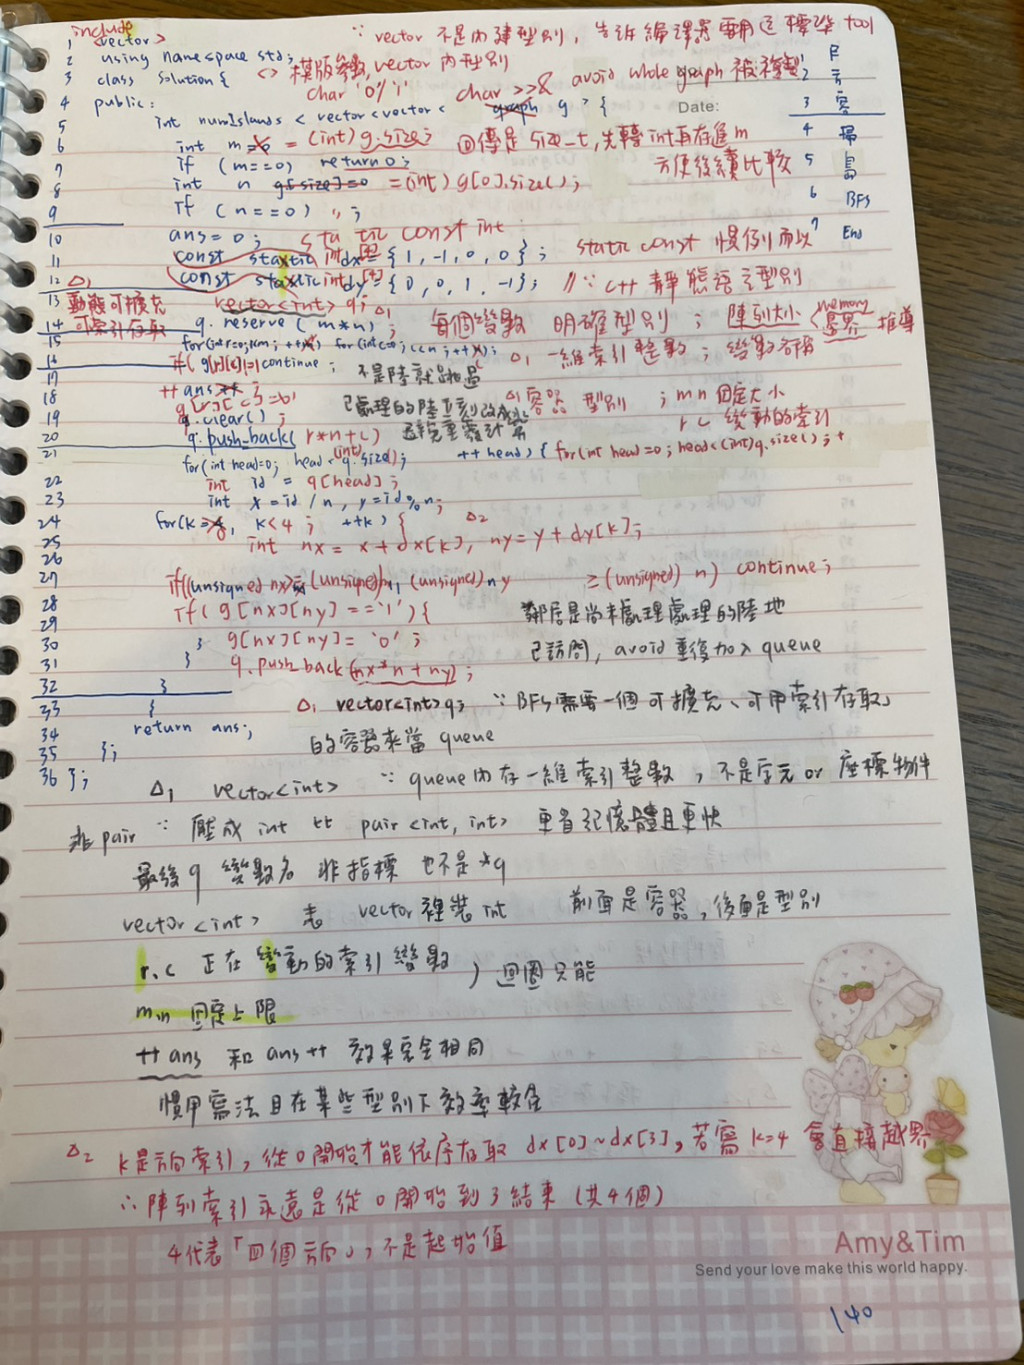 include
1 <vector> ∵ vector 不是內建型別, 告訴編譯器要用這標準 tool
2 using namespace std;
3 class Solution { <> 模版參數, vector 內型別
char '0' '1' char >>& avoid whole graph 被複製
4 public: Date:
5 int numIslands < vector<vector< graph g > {
6 int m = (int) g.size; 回傳是 size_t, 先轉 int 再存進 m
7 if (m==0) return 0; 方便後續比較
8 int n g[size]=0 =(int) g[0].size();
9 if (n==0) 〃;
10 ans=0; static const int
11 const static int dx[4]={1,-1,0,0}; static const 慣例而以
12 const static int dy[4]={0,0,1,-1}; //∵ c++ 靜態語言型別
13 vector<int> q; △1
動態可擴充
14 q.reserve(m*n); 每個變數 明確型別 ; 陣列大小 < memory 邊界 推導
可索引存取
15 for(int r=0;r<m; ++r) for(int c=0; c<n; ++c); △1 一維索引整數; 變數名稱
16 if(g[r][c]!=1 continue; 不是陸就跳過
17
18 ++ans △1容器 型別 ; m n 固定大小
g[r][c]='0' 已處理的陸立刻改成
19 q.clear(); r c 變動的索引
20 q.push_back(r*n+c) 避免重複計算
21 for(int head=0; head<(int)q.size(); ++head) { for(int head=0; head<(int)q.size(); +
22 int id = q[head];
23 int x=id/n, y=id%n;
24 for(k= , k<4; ++k) { △2
25 int nx = x+dx[k], ny=y+dy[k];
26
27 if((unsigned nx)≥(unsigned)m || (unsigned)ny ≥(unsigned) n) continue;
28 if(g[nx][ny]=='1'){ 鄰居是尚未處理處理的陸地
29
30 } g[nx][ny]='0'; 已訪問, avoid 重複加入 queue
31 } q.push_back(nx*n+ny);
32 }
33 { △1 vector<int>q; ∵ BFS需要一個可擴充、可用索引存取」
34 return ans; 的容器來當 queue
35 };
36 };
△1 vector<int> ∵ queue內存一維索引整數, 不是字元 or 座標物件
非pair ∵ 壓成 int 比 pair<int,int> 更省記憶體且更快
最後 q 變數名 非指標 也不是 *q
vector<int> 表 vector 裡裝 int 前面是容器, 後面是型別
r、c 正在變動的索引變數 ) 迴圈只能
m,n 固定上限
++ans 和 ans++ 效果完全相同
慣用寫法且在某些型別下效率較佳
△2 k是方向索引, 從0開始才能依序存取 dx[0]~dx[3], 若寫 k=4 會直接越界
∴陣列索引永遠是從0開始到3結束 (共4個)
4代表「四個方向」, 不是起始值
3 容
4 掃
5 島
6 BFS
7 End
Amy&Tim
Send your love make this world happy.
140